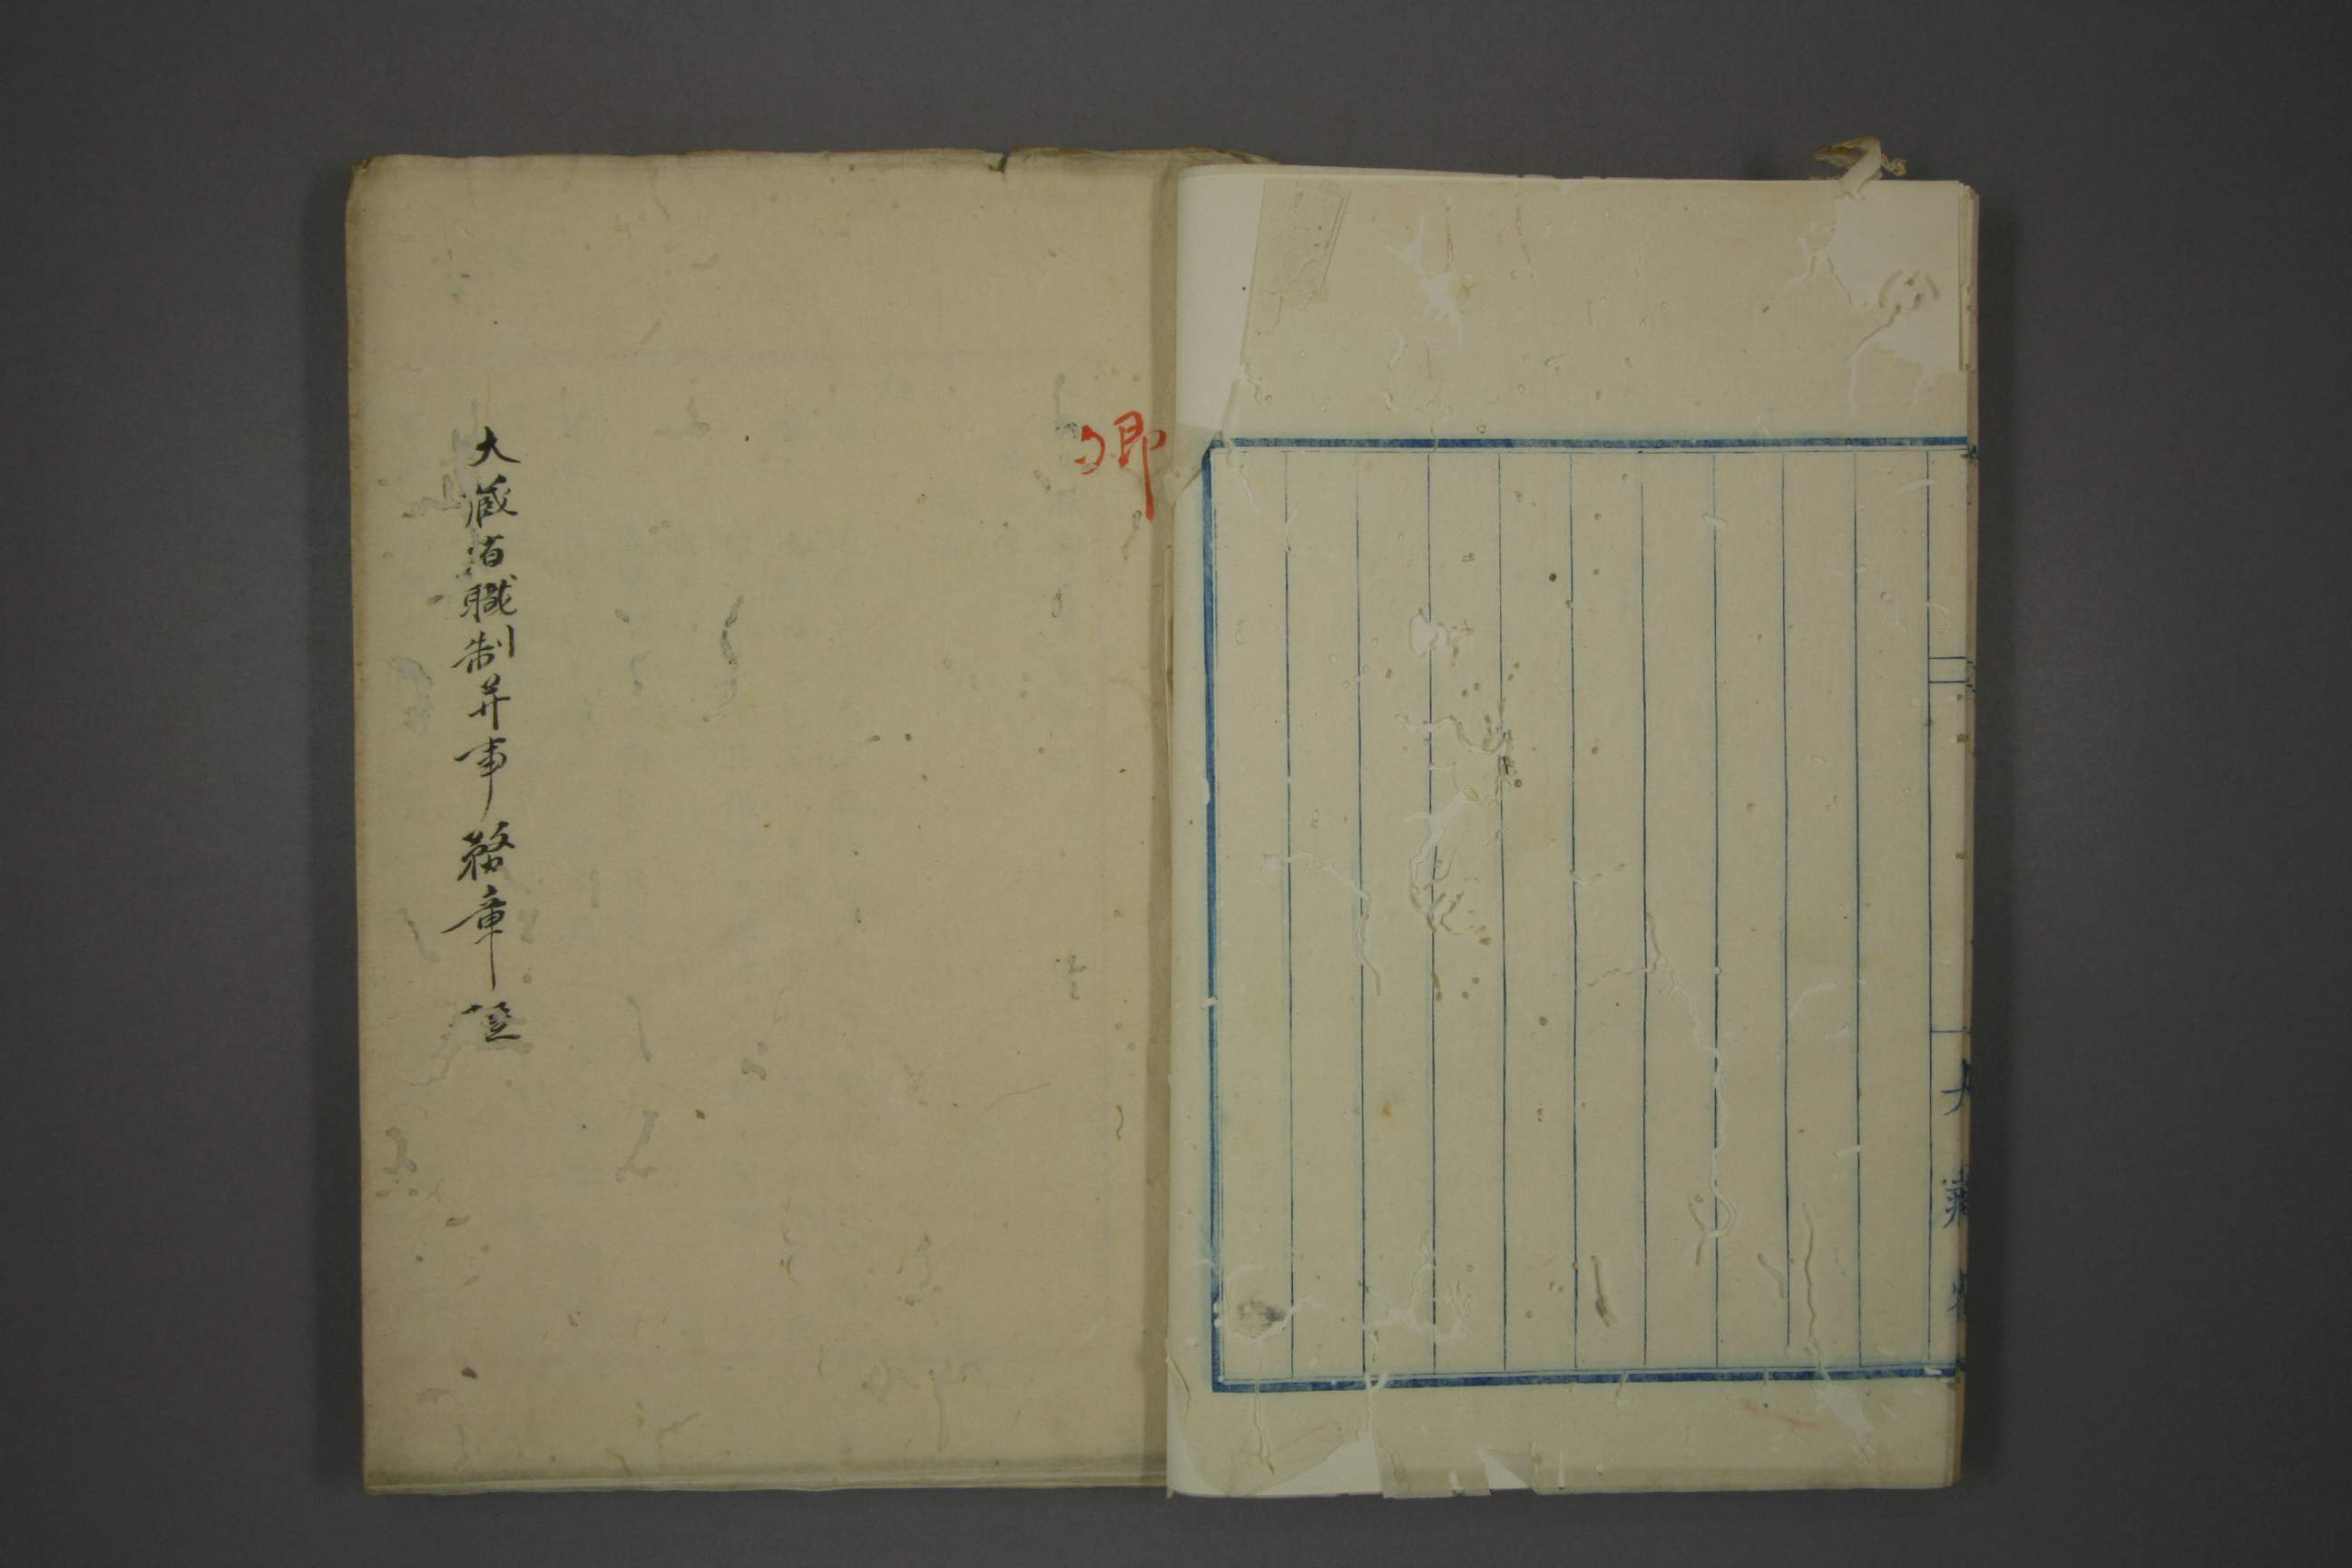 大藏省
卿
大蔵省職制并事務章程